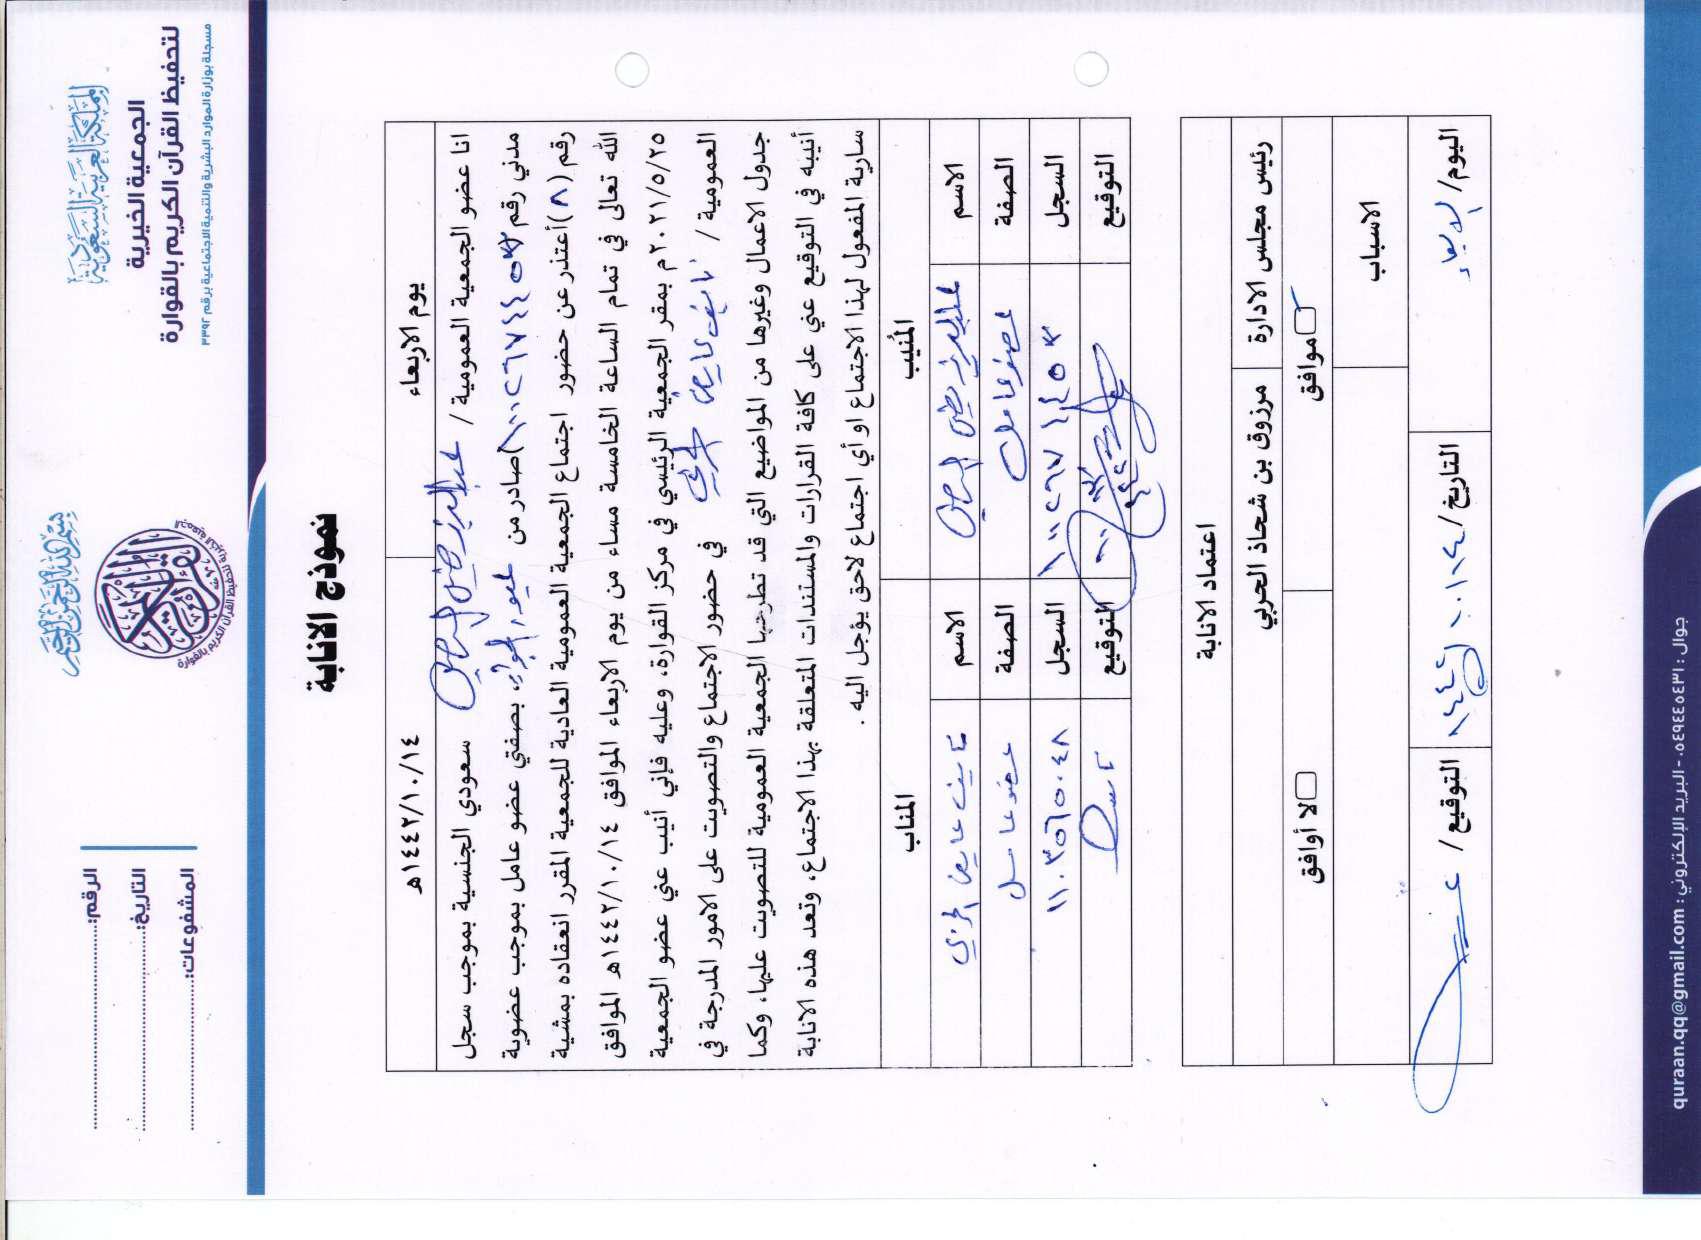 المملكة العربية السعودية
الجمعية الخيرية
لتحفيظ القرآن الكريم بالقوارة
مسجلة بوزارة الموارد البشرية والتنمية الاجتماعية برقم ٣٣٩٢
بسم الله الرحمن الرحيم
الرقم:
التاريخ:
المشفوعات:
نموذج الانابة
يوم الاربعاء
١٤٤٢/١٠/١٤هـ
انا عضو الجمعية العمومية / سعودي الجنسية بموجب سجل
مدني رقم ( )صادر من بصفتي عضو عامل بموجب عضوية
رقم (٨)أعتذر عن حضور اجتماع الجمعية العمومية العادية للجمعية المقرر انعقاده بمشية
الله تعالى في تمام الساعة الخامسة مساء من يوم الاربعاء الموافق ١٤٤٢/١٠/١٤هـ الموافق
٢٠٢١/٥/٢٥م بمقر الجمعية الرئيسي في مركز القوارة، وعليه فإني أنيب عني عضو الجمعية
العمومية / نايف عايض الحربي في حضور الاجتماع والتصويت على الامور المدرجة في
جدول الاعمال وغيرها من المواضيع التي قد تطرحها الجمعية العمومية للتصويت عليها، وكما
أنيبه في التوقيع عني على كافة القرارات والمستندات المتعلقة بهذا الاجتماع، وتعد هذه الانابة
سارية المفعول لهذا الاجتماع او أي اجتماع لاحق يؤجل اليه .
المُنيب
المناب
الاسم
الاسم نايف عايض الحربي
الصفة عضو عامل
الصفة عضو عامل
السجل
السجل ١١٠٣٥٦٥٠٤٨
التوقيع
التوقيع
اعتماد الانابة
رئيس مجلس الادارة
مرزوق بن شحاذ الحربي
موافق
لا أوافق
الاسباب
اليوم/ الاربعاء
التاريخ /
التوقيع /
جوال : ٠٥٤٩٤٤٥٤٣١ - البريد الإلكتروني : quraan.qq@gmail.com